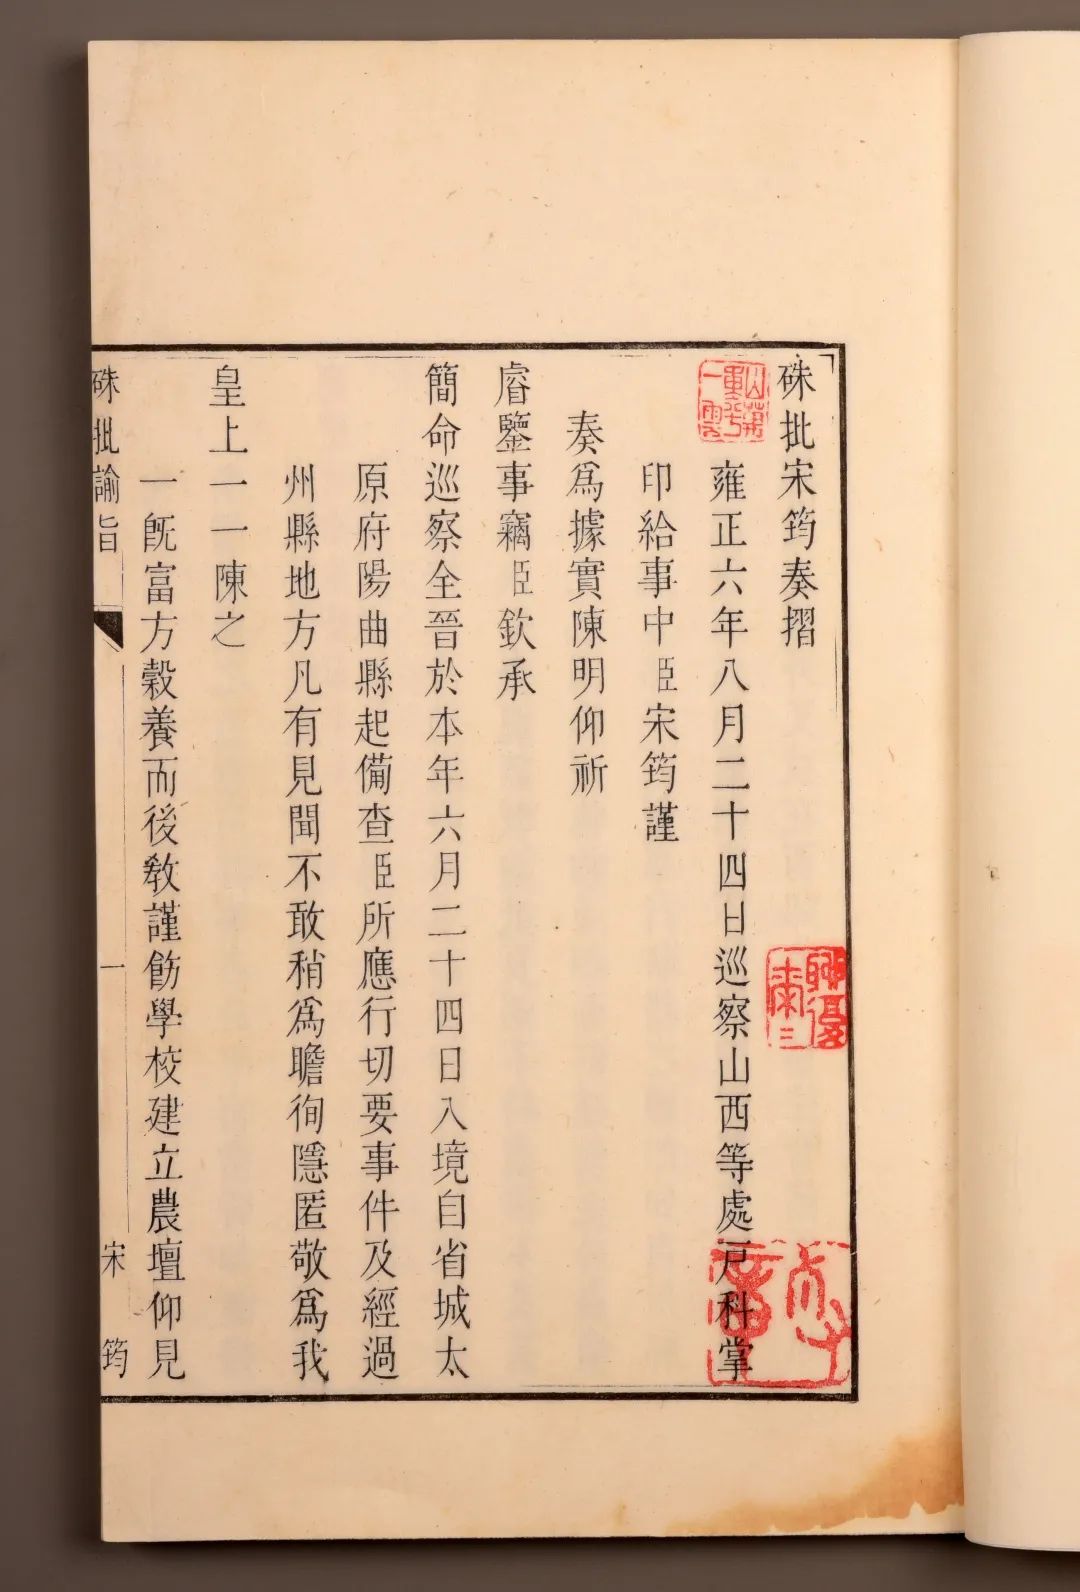 硃批宋筠奏摺
雍正六年八月二十四日巡察山西等處戸科掌
印給事中臣宋筠謹
奏爲據實陳明仰祈
睿鑒事竊臣欽承
簡命巡察全晉於本年六月二十四日入境自省城太
原府陽曲縣起備查臣所應行切要事件及經過
州縣地方凡有見聞不敢稍爲瞻徇隱匿敬爲我
皇上一一陳之
一旣富方穀養而後敎謹飭學校建立農壇仰見
硃批諭旨
一
宋筠